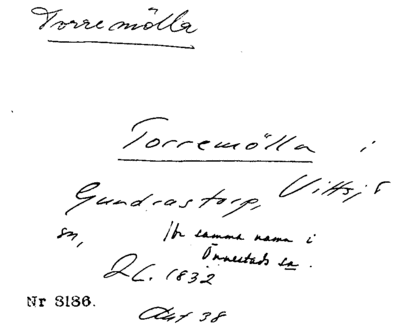 Torremölla
Torremölla i
Gundrastorp, Vittsjö
sn,
Jfr samma namn i
Önnestads sn.
2C. 1832
Nr 3186.
38